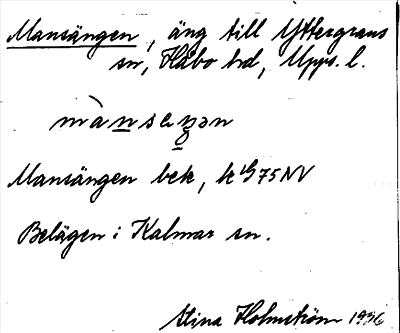 Mansängen, äng till Yttergrans
sn, Håbo hd, Upps. l.
Mansängen bek, k G75NV
Belägen i Kalmar sn.
Stina Holmström 1936